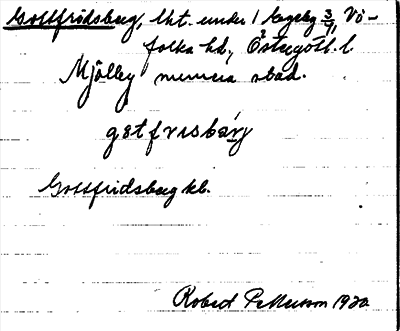 Gottfridsberg, lht. under 1 Lageby 3/4, Vi-
folka hd, Östergötl. l.
Mjölby municia stad.
gøtfrisbærj
Gottfridsberg kb.
Robert Pettersson 1920